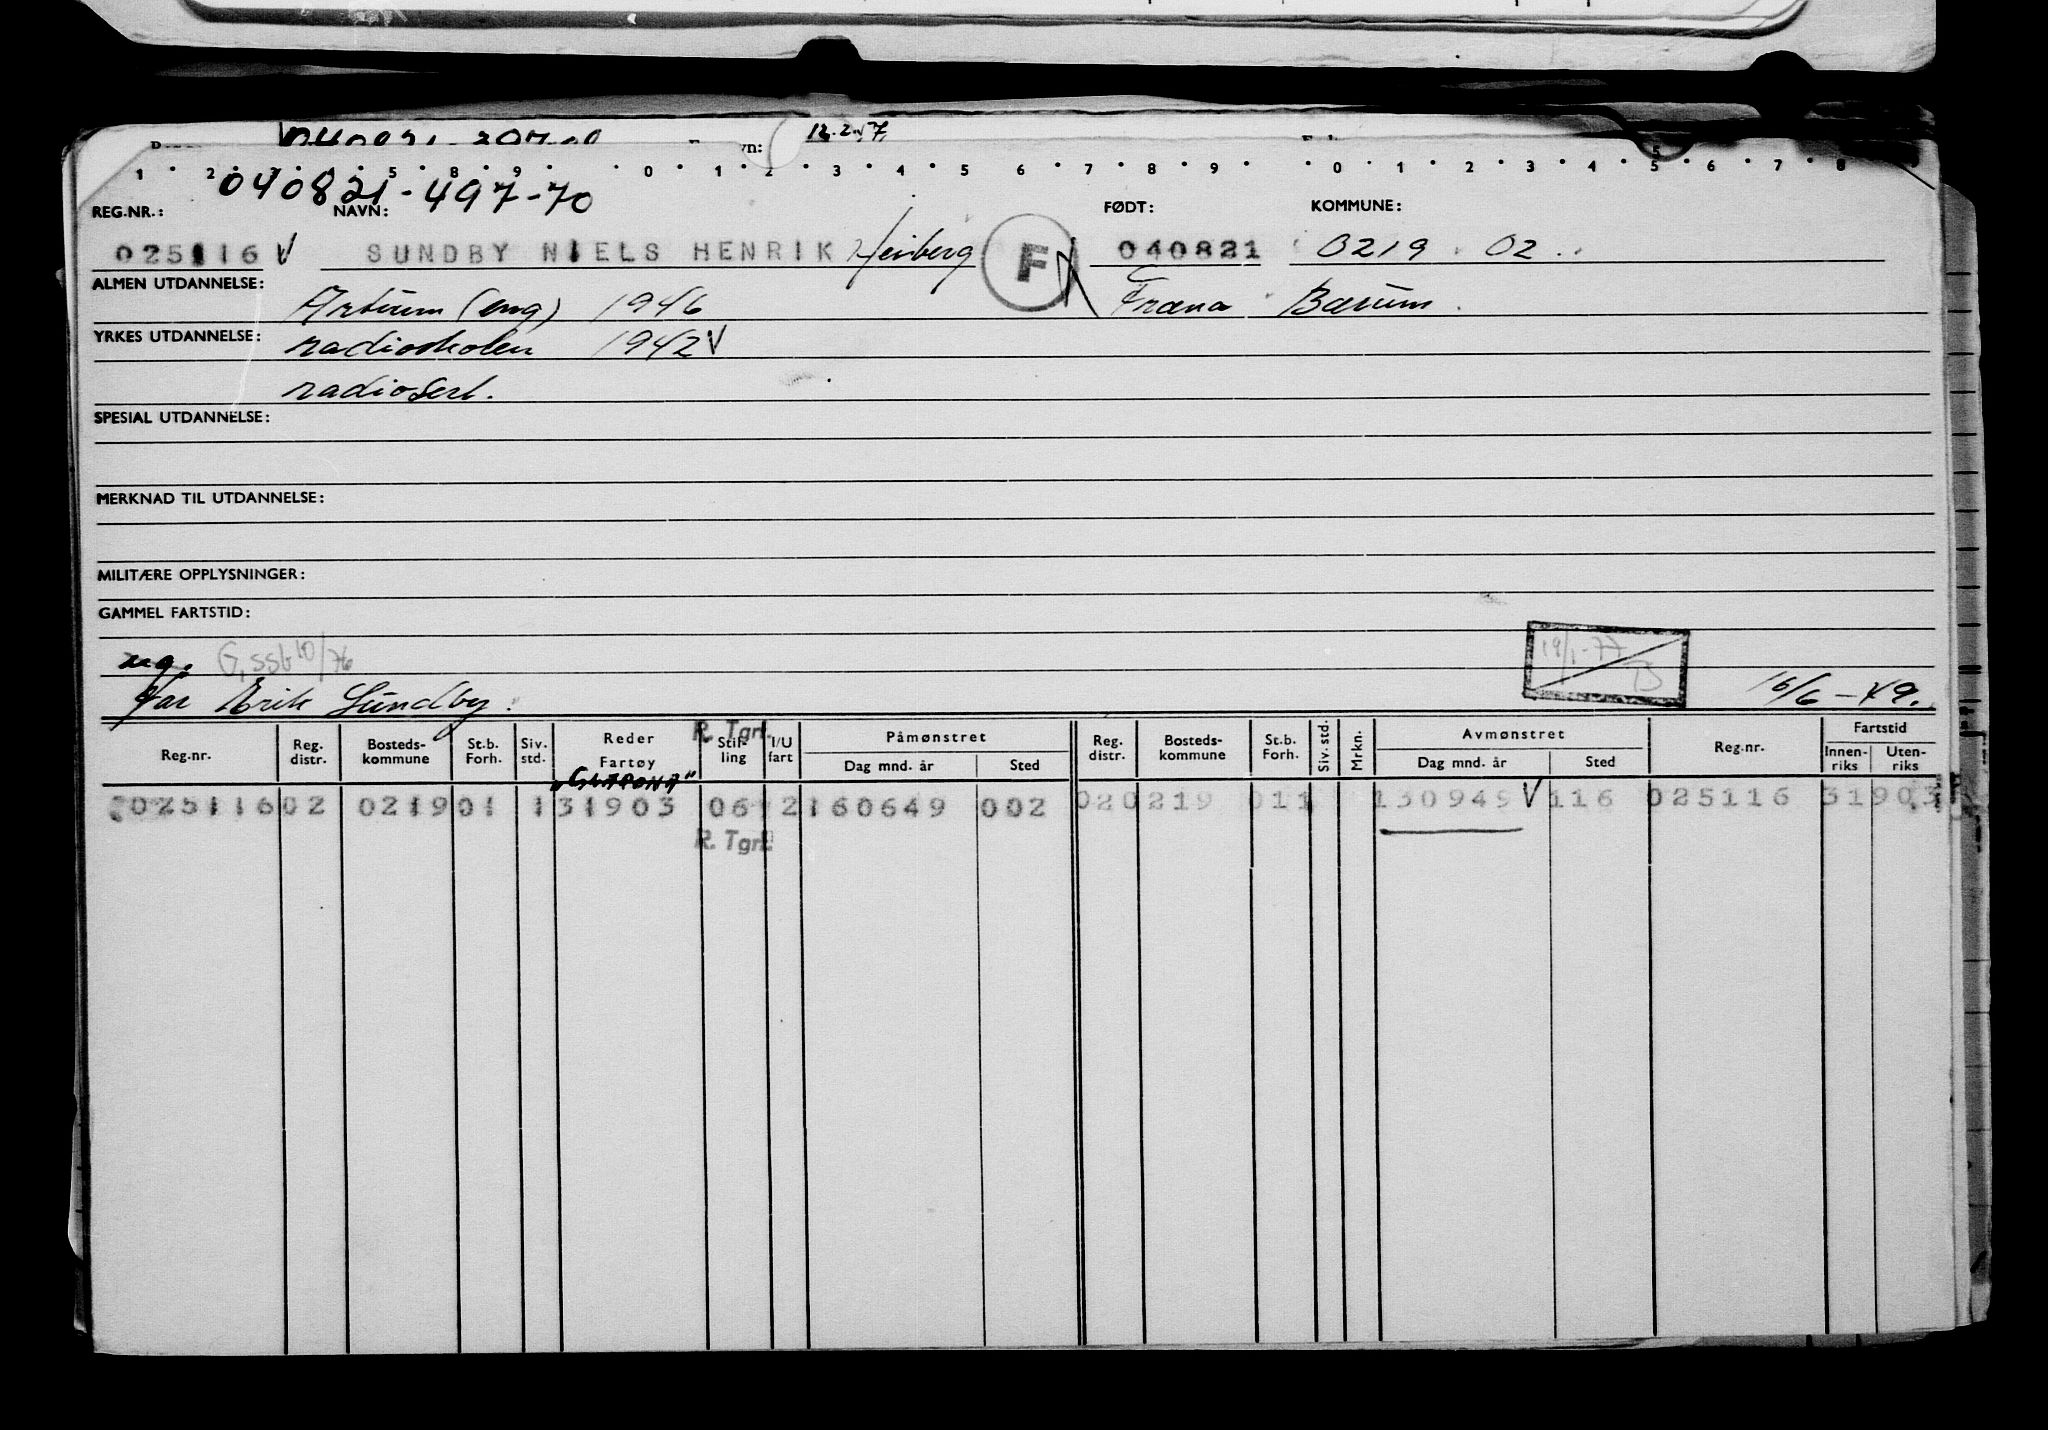 12.2.57
1 2 5 8 9 0 1 2 3 4 5 6 7 8 9 0 1 2 3 4 5 6 7 8
040821-497-70
REG.NR.: NAVN: FØDT: KOMMUNE:
025116 V SUNDBY NIELS HENRIK Heiberg F 040821 0219 02
ALMEN UTDANNELSE: Artium (eng) 1946 Fræna Bærum
YRKES UTDANNELSE: radioskolen 1942 V
radiosert.
SPESIAL UTDANNELSE:
MERKNAD TIL UTDANNELSE:
MILITÆRE OPPLYSNINGER:
GAMMEL FARTSTID:
ug. G, SSb 10/76 19/1-77
Far Erik Sundby. 16/6-49.
R. Tgrf.
Reg.nr. Reg. distr. Bosteds-kommune St.b. Forh. Siv. std. Reder Fartøy Stil-ling I/U fart Påmønstret Dag mnd. år Sted Reg. distr. Bosteds-kommune St.b. Forh. Siv. std. Mrkn. Avmønstret Dag mnd. år Sted Reg.nr. Fartstid Innen-riks Uten-riks
025116 02 0219 01 1 31903 06 2 160649 002 02 0219 011 130949 V 116 025116 31903
R. Tgrf.